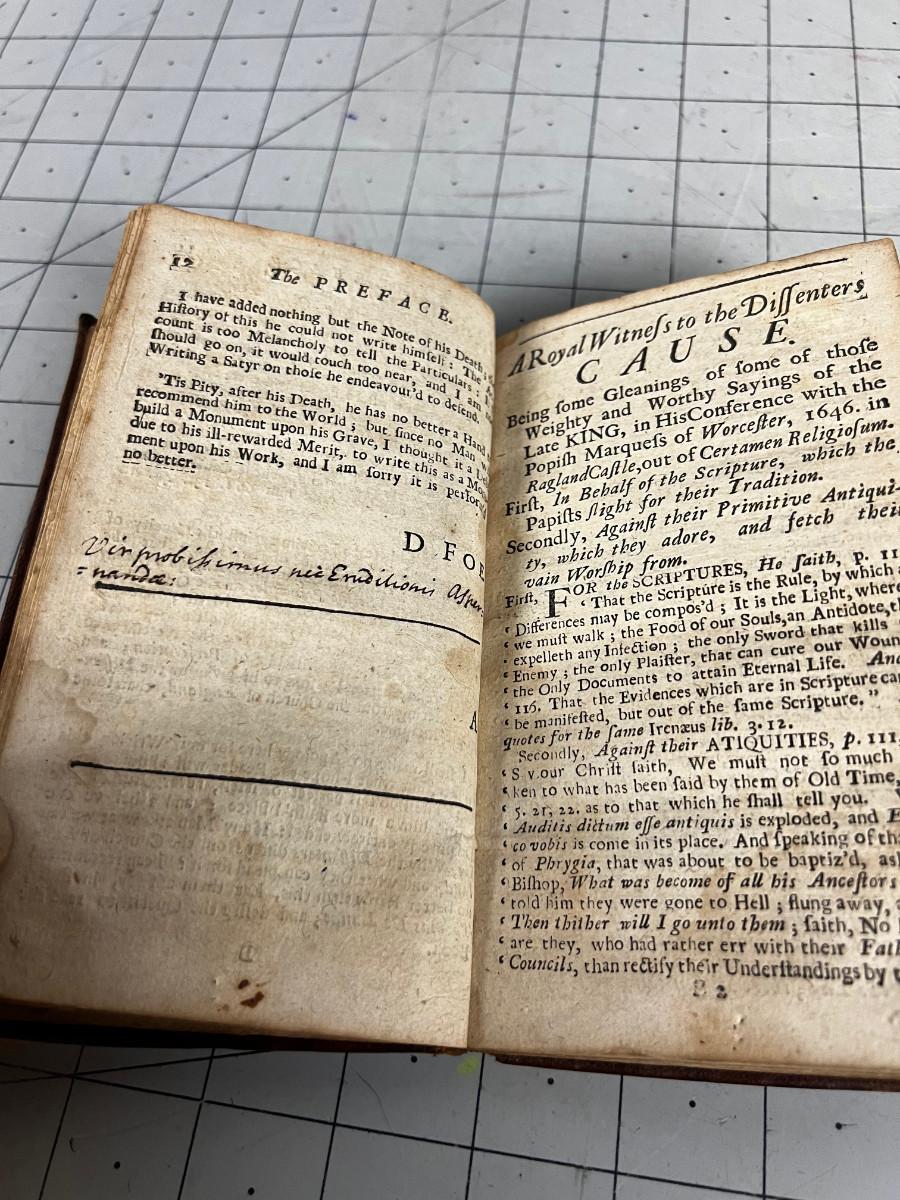 12
The PREFACE.
I have added nothing but the Note of his Death
Hiſtory of this he could not write himſelf: The
count is too Melancholy to tell the Particulars:
ſhould go on, it would touch too near, and I am
Writing a Satyr on thoſe he endeavour'd to defend.
'Tis Pity, after his Death, he has no better a Hand
recommend him to the World; but ſince no Man
build a Monument upon his Grave, I thought it a
due to his ill-rewarded Merit, to write this as a
ment upon his Work, and I am ſorry it is
no better.
D FOE
Vir probiſsimus nec Eruditionis Aſper
=nandæ:
A
A Royal Witneſs to the Diſſenters
CAUSE.
Being ſome Gleanings of ſome of thoſe
Weighty and Worthy Sayings of the
Late KING, in His Conference with the
Popiſh Marqueſs of Worceſter, 1646. in
Ragland Caſtle, out of Certamen Religioſum.
Firſt, In Behalf of the Scripture, which the
Papiſts ſlight for their Tradition.
Secondly, Againſt their Primitive Antiqui-
ty, which they adore, and fetch their
vain Worſhip from.
Firſt, FOR the SCRIPTURES, He ſaith, p. 11
‘ That the Scripture is the Rule, by which
‘ Differences may be compos'd; It is the Light, where
‘ we muſt walk; the Food of our Souls, an Antidote,
‘ expelleth any Infection; the only Sword that kills
‘ Enemy; the only Plaiſter, that can cure our
‘ the Only Documents to attain Eternal Life. And
‘ 116. That the Evidences which are in Scripture
‘ be manifeſted, but out of the ſame Scripture. ”
quotes for the ſame Irenæus lib. 3. 12.
Secondly, Againſt their ATIQUITIES, p. 111,
‘ S v our Chriſt ſaith, We muſt not ſo much
‘ ken to what has been ſaid by them of Old Time,
‘ 5. 21, 22. as to that which he ſhall tell you.
‘ Auditis dictum eſſe antiquis is exploded, and E
‘ co vobis is come in its place. And ſpeaking of
‘ of Phrygia, that was about to be baptiz'd,
‘ Biſhop, What was become of all his Anceſtors
‘ told him they were gone to Hell; flung away,
‘ Then thither will I go unto them; ſaith, No
‘ are they, who had rather err with their
‘ Councils, than rectify their Underſtandings by
B 2